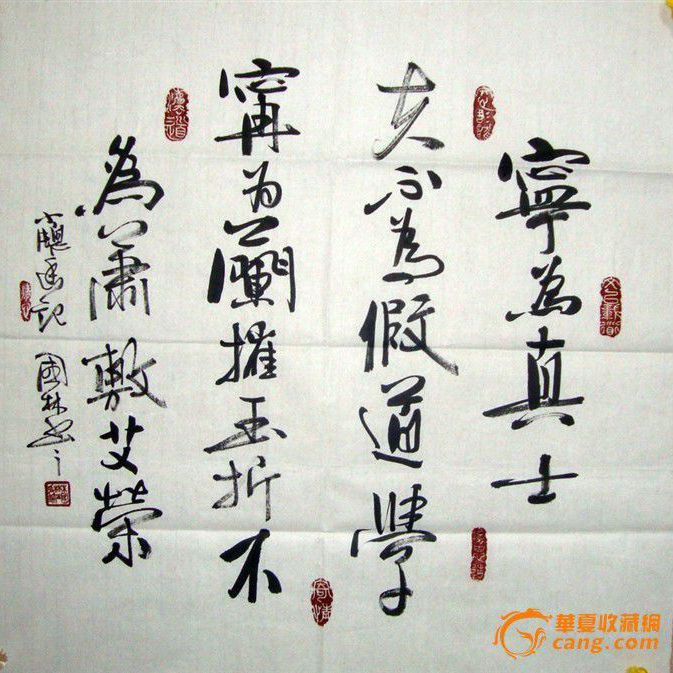 寧為真士
夫不為假道學
甯为蘭摧玉折不
為蕭敷艾榮
小牕幽記 國林书之
華夏收藏網
cang.com